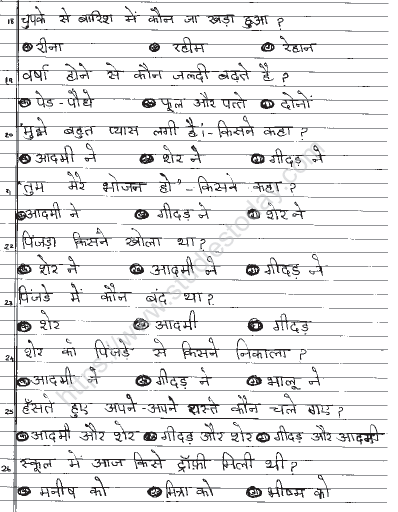 18 चुपके से बारिश में कौन जा खड़ा हुआ ?
रीना रहीम रेहान
19 वर्षा होने से कौन जल्दी बढ़ते है ?
पेड़-पौधे फूल और पत्ते दोनों
20 'मुझे बहुत प्यास लगी है।'- किसने कहा ?
आदमी ने शेर ने गीदड़ ने
21 "तुम मेरे भोजन हो"- किसने कहा ?
आदमी ने गीदड़ ने शेर ने
22 पिंजड़ा किसने खोला था ?
शेर ने आदमी ने गीदड़ ने
23 पिंजडे में कौन बंद था ?
शेर आदमी गीदड़
24 शेर को पिंजडे से किसने निकाला ?
आदमी ने गीदड़ ने भालू ने
25 हँसते हुए अपने-अपने रास्ते कौन चले गए ?
आदमी और शेर गीदड़ और शेर गीदड़ और आदमी
26 स्कूल में आज किसे ट्रॉफ़ी मिली थी ?
मनीष को मित्रा को भीष्म को
https://www.studiestoday.com